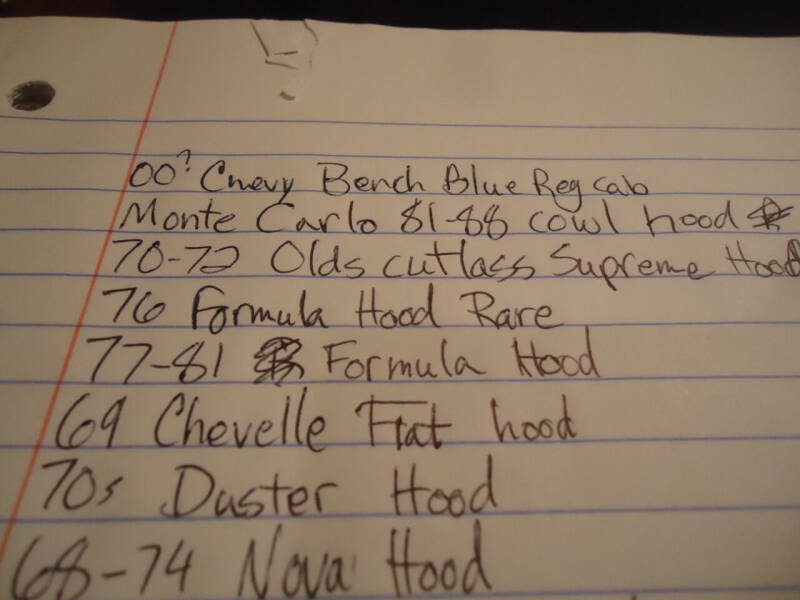 00? Chevy Bench Blue Reg cab
Monte Carlo 81-88 cowl hood
70-72 Olds cutlass Supreme Hood
76 Formula Hood Rare
77-81 Formula Hood
69 Chevelle Flat hood
70s Duster Hood
68-74 Nova Hood